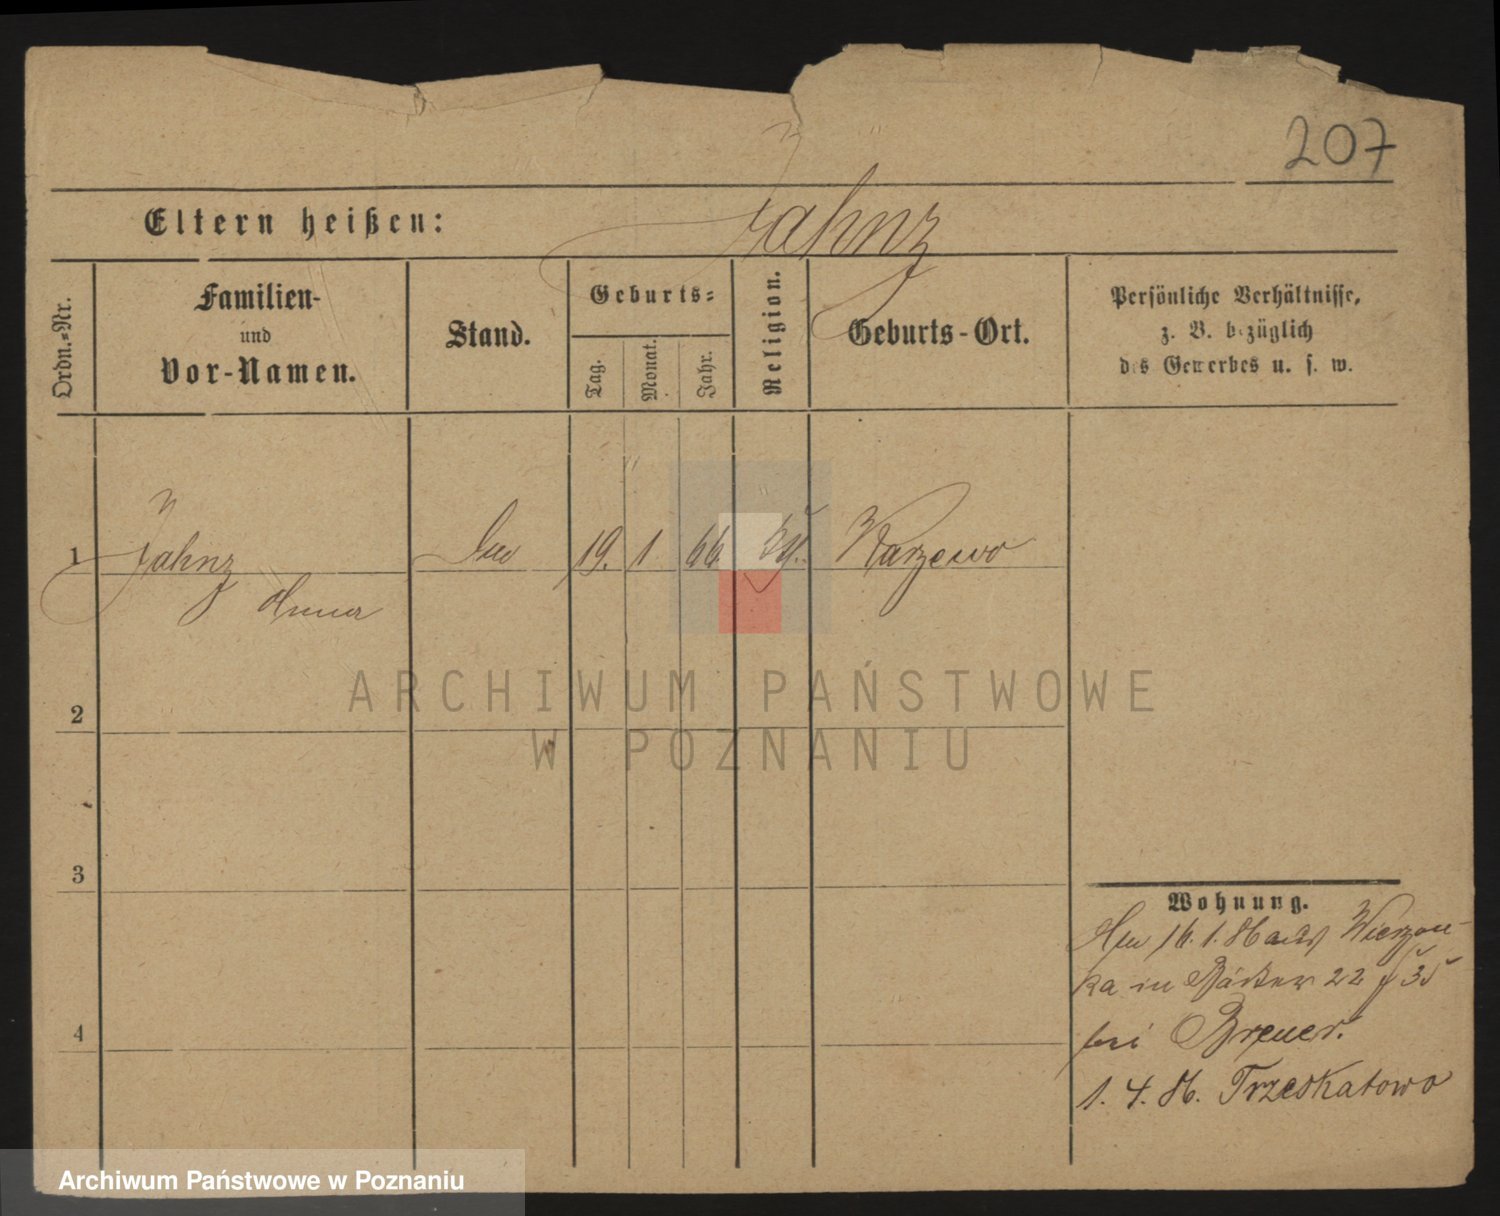 207
Eltern heißen: Jahnz
Ordn.-Nr.
Familien-
und
Vor-Namen.
Stand.
Geburts-
Tag.
Monat.
Jahr.
Religion.
Geburts-Ort.
Persönliche Verhältnisse,
z. B. bezüglich
des Gewerbes u. s. w.
1 Jahnz 19. 1 66 Warzewo
Anna
2
3
4
Wohnung.
16. 1. 86 aus Wierzon-
ka in 22 35
bei Breuer.
1. 4. 86. Trzeskatowo
ARCHIWUM PAŃSTWOWE
W POZNANIU
Archiwum Państwowe w Poznaniu